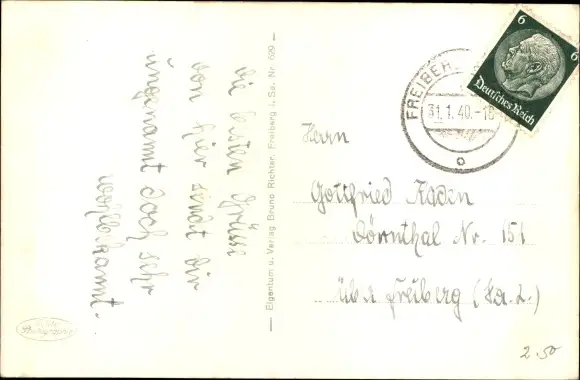 die besten Grüsse
von hier sendet Dir
ungenannt doch sehr
wohlbekannt.
— Eigentum u. Verlag Bruno Richter, Freiberg i. Sa. Nr. 629 —
6 6
Deutsches Reich
FREIBER
31.1.40.-18
Herrn
Gottfried Kaden
Dörnthal Nr. 151
üb. Freiberg (Sa.-L.)
2.50